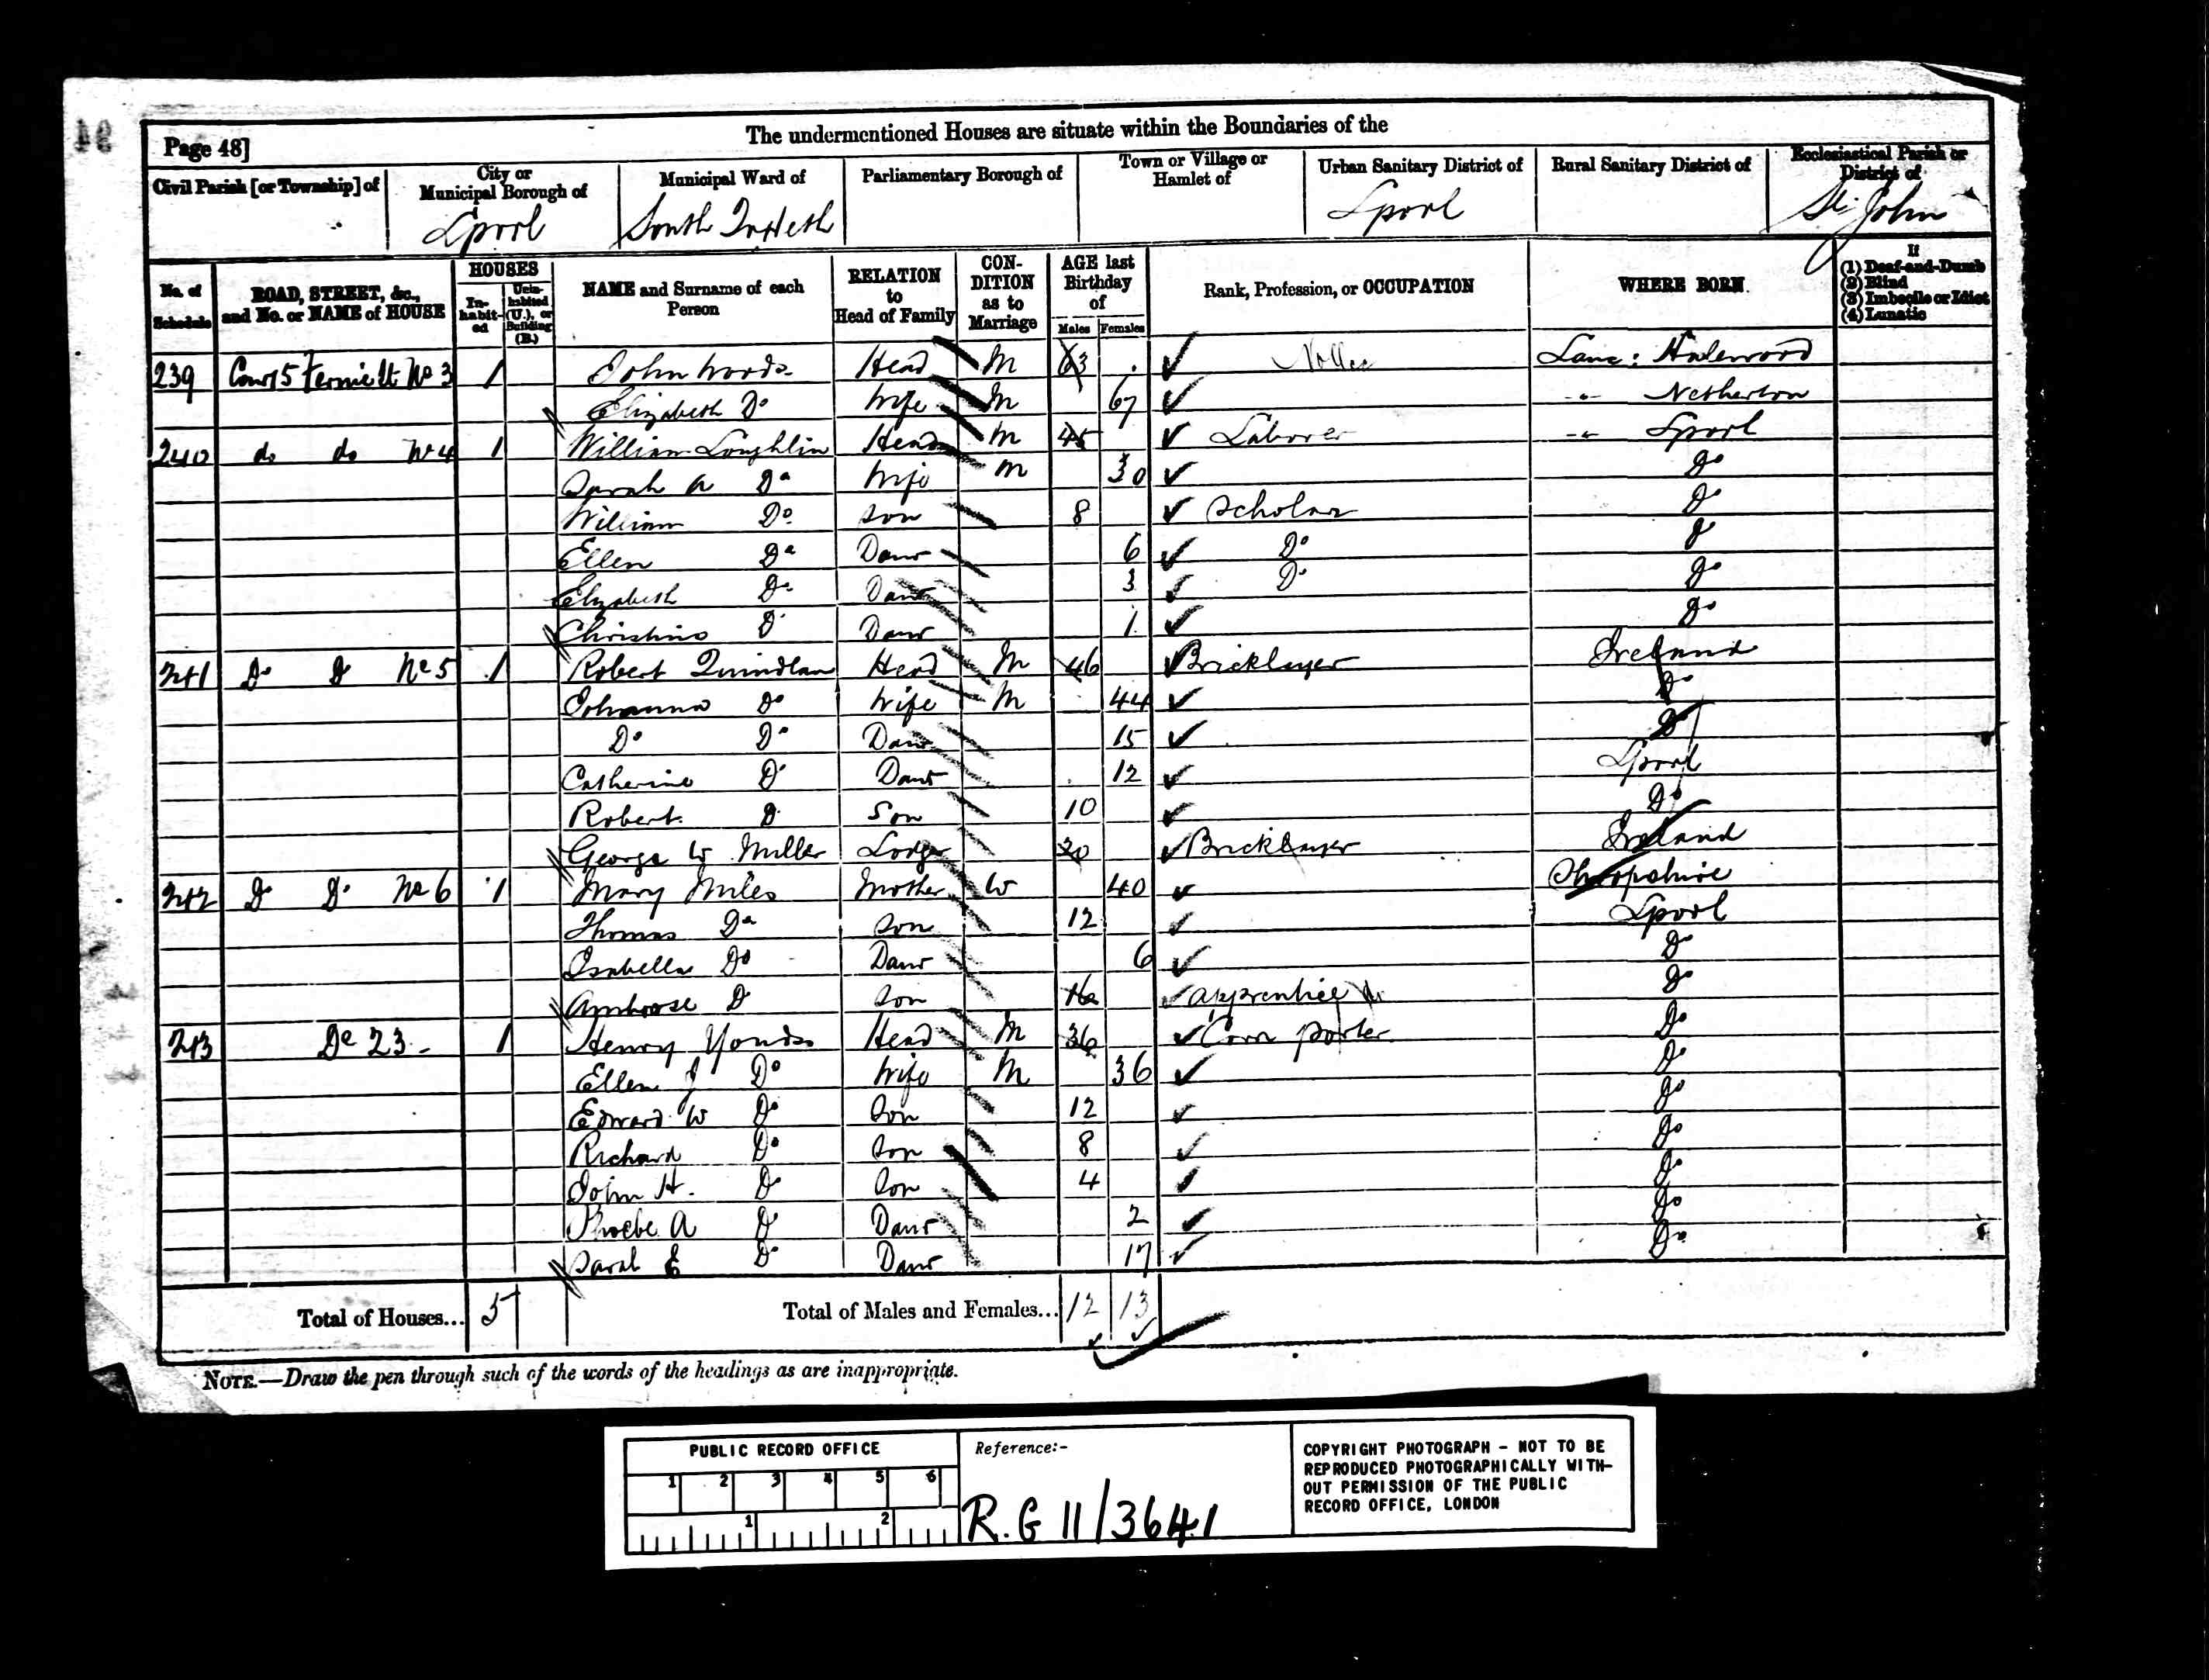 The undermentioned Houses are situate within the Boundaries of the
Page 48]
Civil Parish [or Township] of
City or Municipal Borough of
Lpool
Municipal Ward of
South Toxteth
Parliamentary Borough of
Town or Village or Hamlet of
Urban Sanitary District of
Lpool
Rural Sanitary District of
Ecclesiastical Parish or District of
St. John
No. of Schedule
ROAD, STREET, &c., and No. or NAME of HOUSE
HOUSES
In-habit-ed
Unin-habited (U.), or Building (B.)
NAME and Surname of each Person
RELATION to Head of Family
CON-DITION as to Marriage
AGE last Birthday of
Males Females
Rank, Profession, or OCCUPATION
WHERE BORN
If
(1) Deaf-and-Dumb
(2) Blind
(3) Imbecile or Idiot
(4) Lunatic
239 Court 5 No 3 1 John Woods Head M 63 Lanc: Halewood
Elizabeth Do Wife M 67 Netherton
240 do do No 4 1 William Loughlin Head M 45 Laborer Lpool
Sarah A Do Wife M 30 Do
William Do Son 8 Scholar Do
Ellen Do Daur 6 Do Do
Elizabeth Do Daur 3 Do Do
Christina Do Daur 1 Do
241 Do Do No 5 1 Robert Quindlan Head M 46 Bricklayer Ireland
Johanna Do Wife M 44 Do
Do Do Daur 15 Do
Catherine Do Daur 12 Lpool
Robert Do Son 10 Do
George W Miller Lodger 20 Bricklayer Ireland
242 Do Do No 6 1 Mary Miles Mother W 40 Shropshire
Thomas Do Son 12 Lpool
Isabella Do Daur 6 Do
Ambrose Do Son 16 Apprentice Do
243 Do 23 1 Henry Head M 36 Corn porter Do
Ellen J Do Wife M 36 Do
Edward W Do Son 12 Do
Richard Do Son 8 Do
John H. Do Son 4 Do
Phoebe A Do Daur 2 Do
Sarah E Do Daur 17 Do
Total of Houses... 5 Total of Males and Females... 12 13
NOTE.—Draw the pen through such of the words of the headings as are inappropriate.
PUBLIC RECORD OFFICE
1 2 3 4 5 6
1 2
Reference:-
R.G 11/3641
COPYRIGHT PHOTOGRAPH - NOT TO BE
REPRODUCED PHOTOGRAPHICALLY WITH-
OUT PERMISSION OF THE PUBLIC
RECORD OFFICE, LONDON